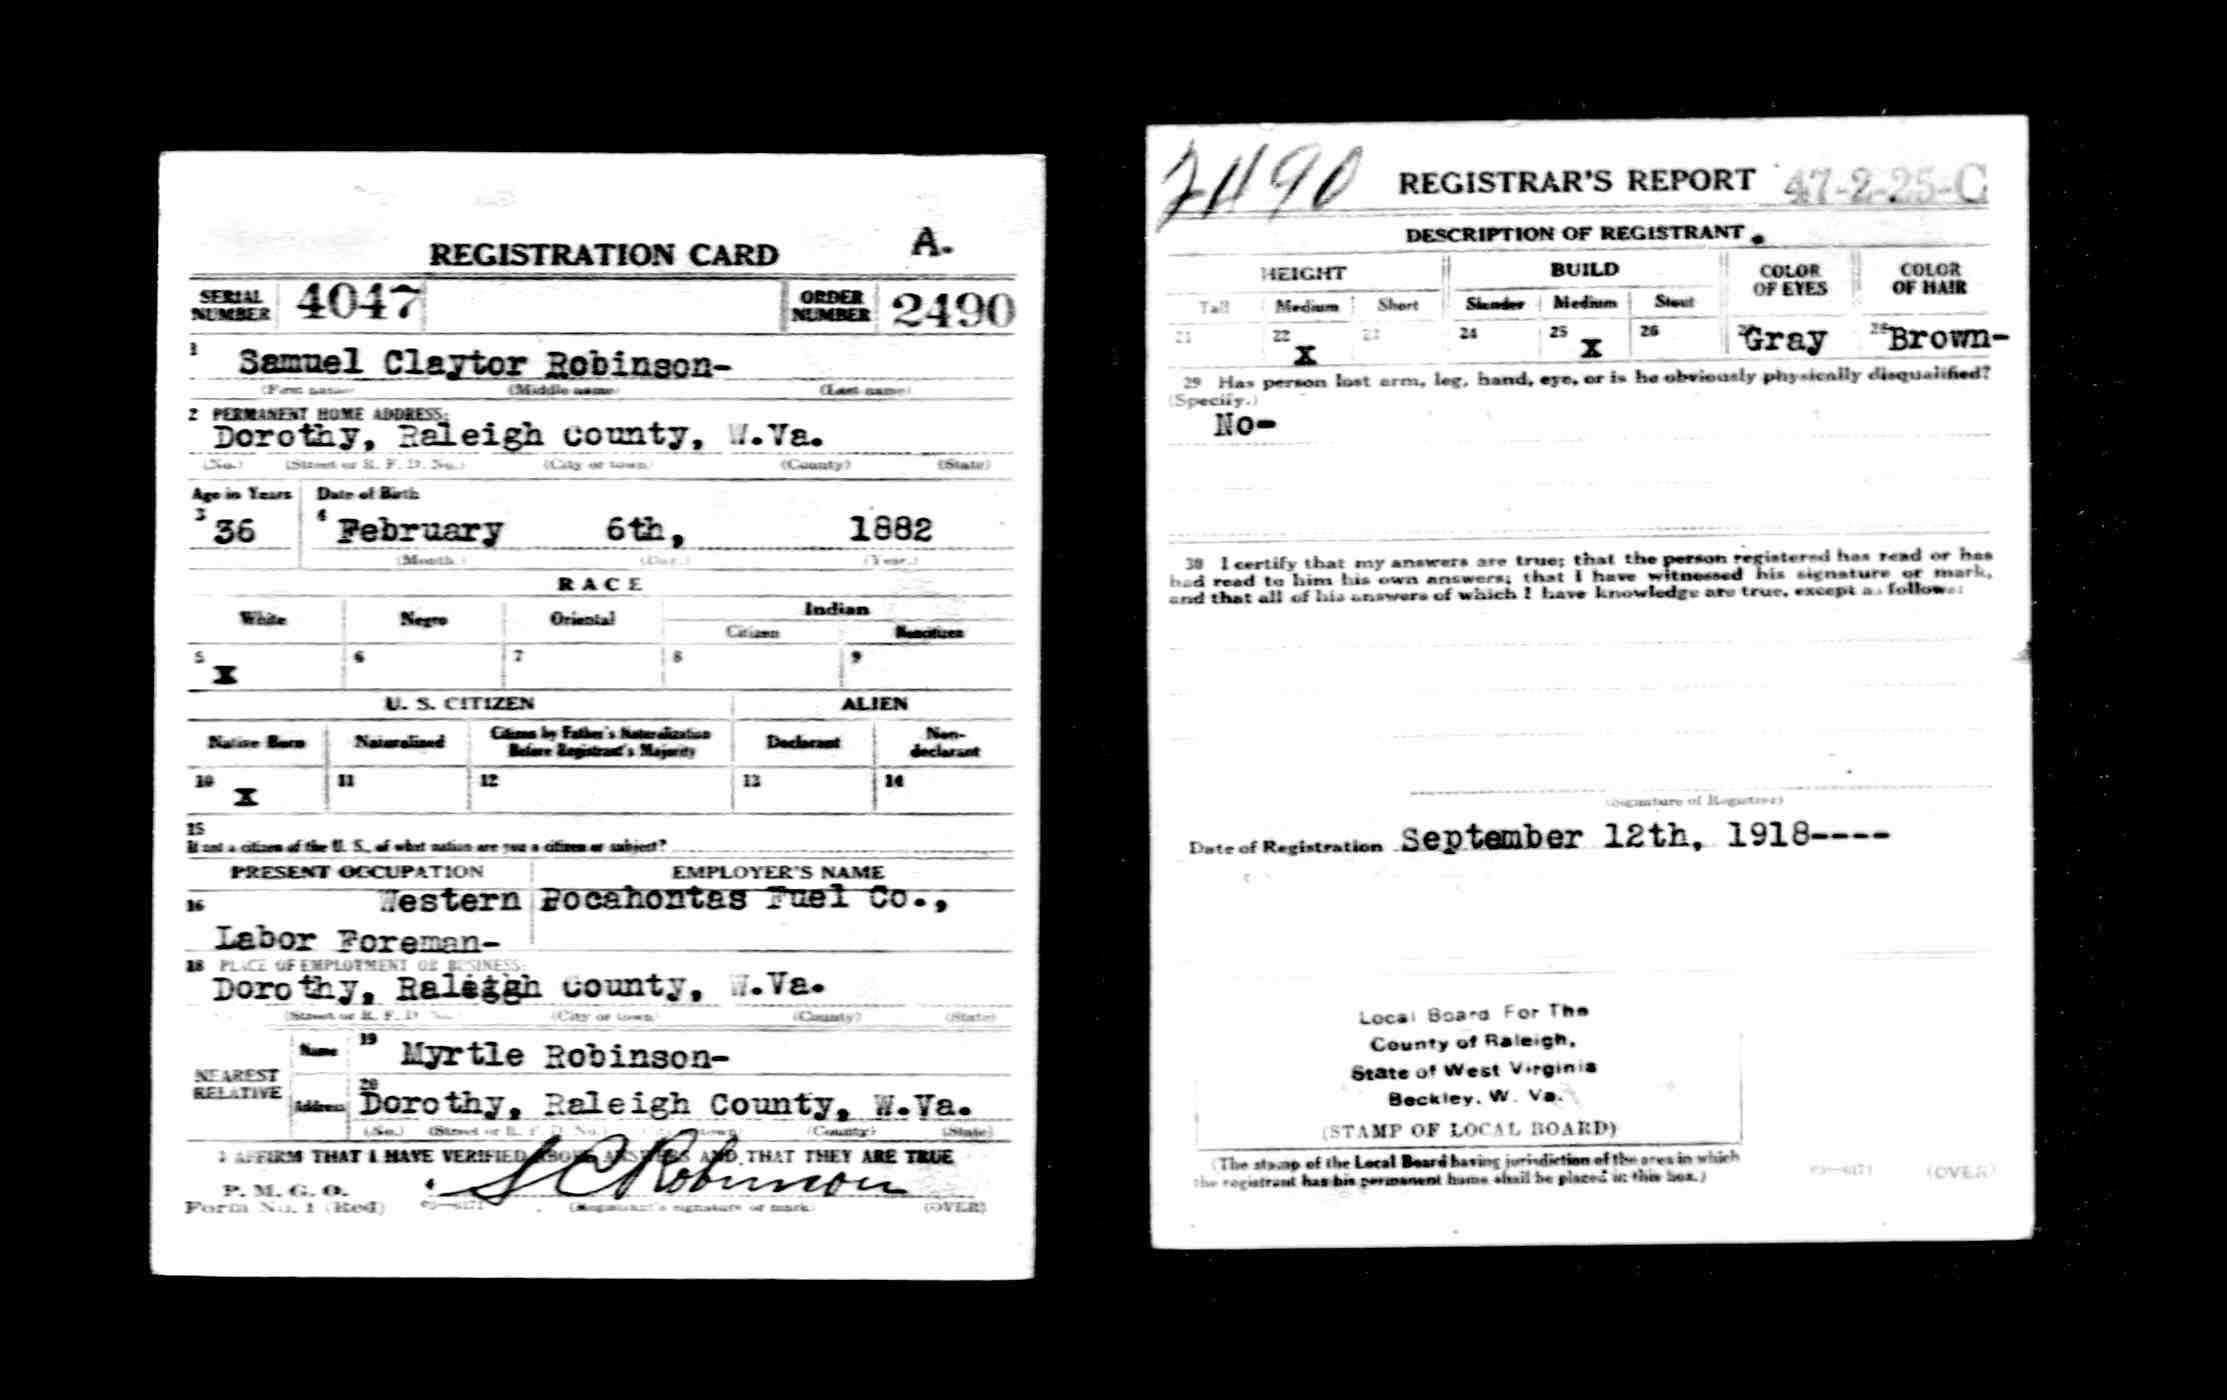 REGISTRATION CARD A.
SERIAL NUMBER 4047 ORDER NUMBER 2490
1 Samuel Claytor Robinson-
(First name) (Middle name) (Last name)
2 PERMANENT HOME ADDRESS:
Dorothy, Raleigh County, W.Va.
(No.) (Street or R. F. D. No.) (City or town) (County) (State)
Age in Years Date of Birth
3 36 4 February 6th, 1882
(Month.) (Day.) (Year.)
RACE
White Negro Oriental Indian
Citizen Noncitizen
5 X 6 7 8 9
U. S. CITIZEN ALIEN
Native Born Naturalized Citizen by Father's Naturalization Before Registrant's Majority Declarant Non-declarant
10 X 11 12 13 14
15
If not a citizen of the U. S., of what nation are you a citizen or subject?
PRESENT OCCUPATION EMPLOYER'S NAME
16 Western Pocahontas Fuel Co.,
Labor Foreman-
18 PLACE OF EMPLOYMENT OR BUSINESS:
Dorothy, Raleigh County, W.Va.
(Street or R. F. D. No.) (City or town) (County) (State)
NEAREST RELATIVE
Name 19 Myrtle Robinson-
Address 20 Dorothy, Raleigh County, W.Va.
(No.) (Street or R. F. D. No.) (City or town) (County) (State)
I AFFIRM THAT I HAVE VERIFIED ABOVE ANSWERS AND THAT THEY ARE TRUE
P. M. G. O.
Form No. 1 (Red) S C Robinson
(Registrant's signature or mark) (OVER)
2490 REGISTRAR'S REPORT 47-2-25-C
DESCRIPTION OF REGISTRANT
HEIGHT BUILD COLOR OF EYES COLOR OF HAIR
Tall Medium Short Slender Medium Stout
21 22 X 23 24 25 X 26 27 Gray 28 Brown-
29 Has person lost arm, leg, hand, eye, or is he obviously physically disqualified?
(Specify.)
No-
30 I certify that my answers are true; that the person registered has read or has
had read to him his own answers; that I have witnessed his signature or mark,
and that all of his answers of which I have knowledge are true, except as follows:
(Signature of Registrar)
Date of Registration September 12th, 1918----
Local Board For The
County of Raleigh,
State of West Virginia
Beckley, W. Va.
(STAMP OF LOCAL BOARD)
(The stamp of the Local Board having jurisdiction of the area in which
the registrant has his permanent home shall be placed in this box.)
03—6171 (OVER)